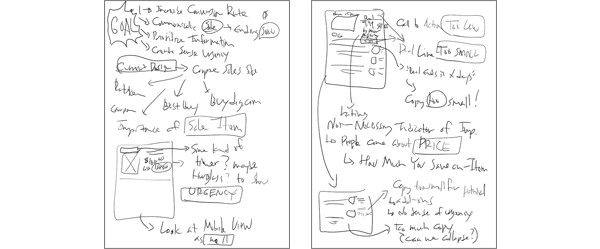 GOAL
Increase Conversion Rate
Communicate Sale → Ending Soon
Prioritize Information
Create Sense Urgency
Current Design → Compare Sales Site
Best Buy
Buydig.com
Importance of Sale Item
Some kind of
timer? maybe
hourglass? to show
URGENCY
Look at Mobile View
as well
Call to Action Too Low
Deal Line Too SMALL
"Deal ends in X days"
Copy too small!
Rating
Not Necessary Indicator of Imp.
People care about PRICE
How Much You Save on Item
Copy too small for
add-ons
no sense of urgency
Too much copy
(can we collapse?)